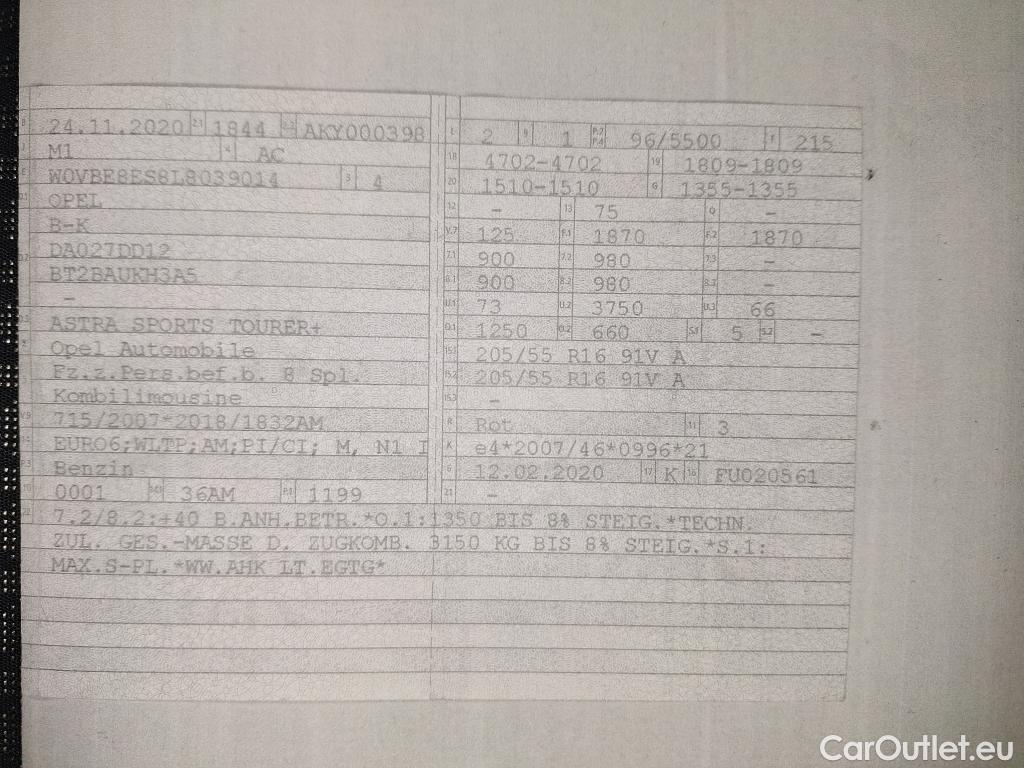 24.11.2020 2.1 1844 2.2 AKY000398
M1 4 AC
W0VBE8ES8L8039014 3 4
OPEL
B-K
DA027DD12
BT2BAUKH3A5
-
ASTRA SPORTS TOURER+
Opel Automobile
Fz.z.Pers.bef.b. 8 Spl.
Kombilimousine
715/2007*2018/1832AM
EURO6;WLTP;AM;PI/CI; M, N1 I
Benzin
0001 36AM P.1 1199
L 2 9 1 P.2 P.4 96/5500 T 215
18 4702-4702 19 1809-1809
20 1510-1510 G 1355-1355
12 - 13 75 Q -
V.7 125 F.1 1870 F.2 1870
7.1 900 7.2 980 7.3 -
8.1 900 8.2 980 8.3 -
U.1 73 U.2 3750 U.3 66
O.1 1250 O.2 660 S.1 5 S.2 -
15.1 205/55 R16 91V A
15.2 205/55 R16 91V A
15.3 -
R Rot 11 3
K e4*2007/46*0996*21
6 12.02.2020 17 K 16 FU020561
21 -
22 7.2/8.2:+40 B.ANH.BETR.*O.1:1350 BIS 8% STEIG.*TECHN.
ZUL. GES.-MASSE D. ZUGKOMB. 3150 KG BIS 8% STEIG.*S.1:
MAX.S-PL.*WW.AHK LT.EGTG*
CarOutlet.eu